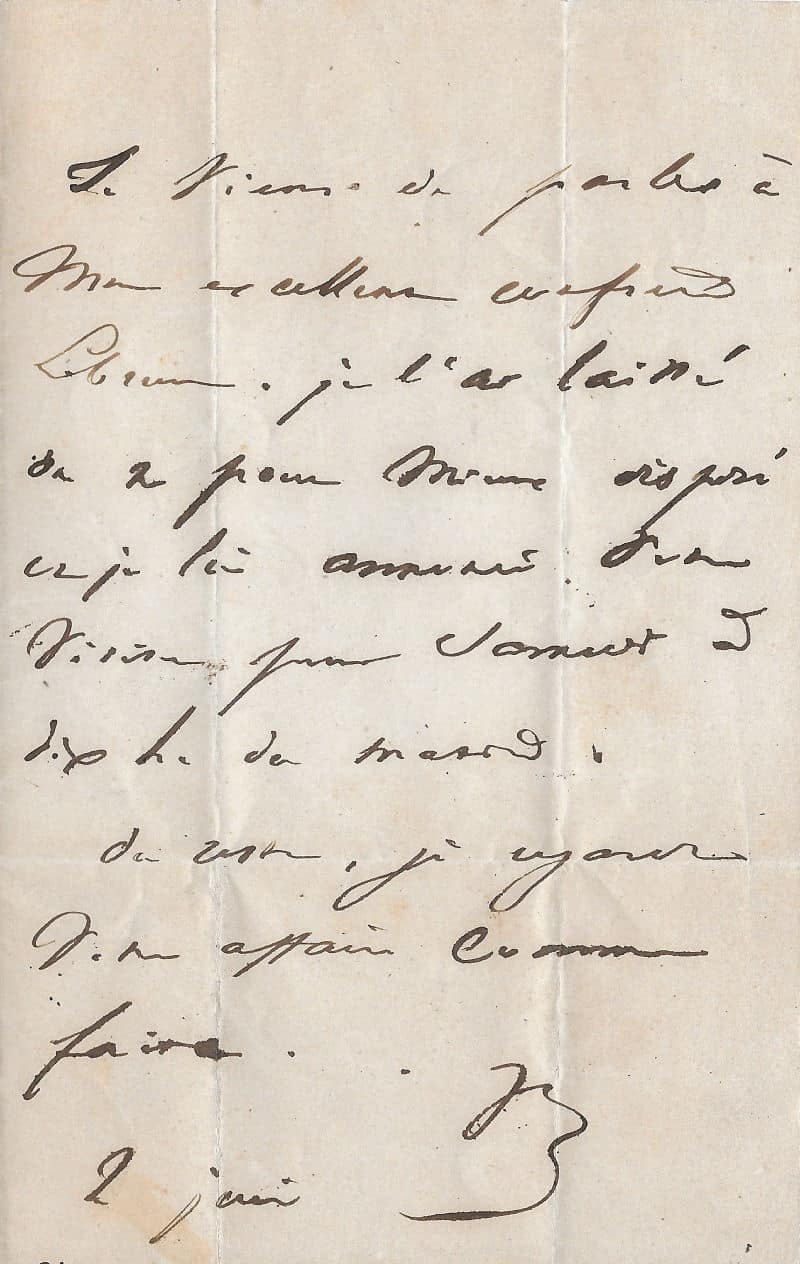 Je viens de parler à
mon excellent confrère
Lebrun. je l'ai laissé
on ne peut mieux disposé
et je lui annoncé votre
visite pour samedi à
dix h. du matin.
du reste, je regarde
votre affaire comme
faite.
2 juin